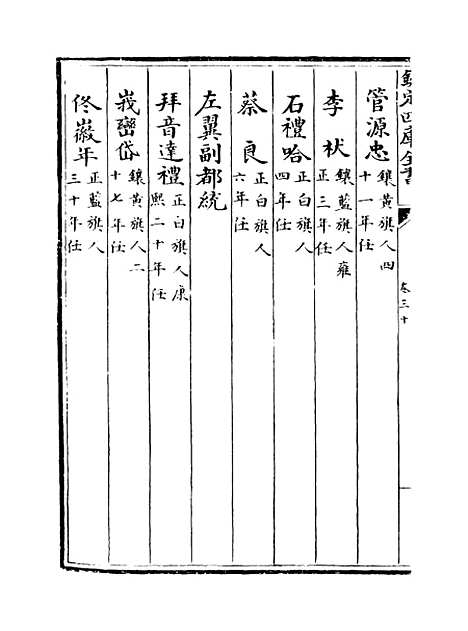 欽定四庫全書
卷三十
管源忠 鑲黃旗人四十一年任
李杕 鑲藍旗人雍正三年任
石禮哈 正白旗人四年任
蔡良 正白旗人六年任
左翼副都統
拜音達禮 正白旗人康熙二十年任
峩巒岱 鑲黃旗人二十七年任
佟嶶年 正藍旗人三十年任